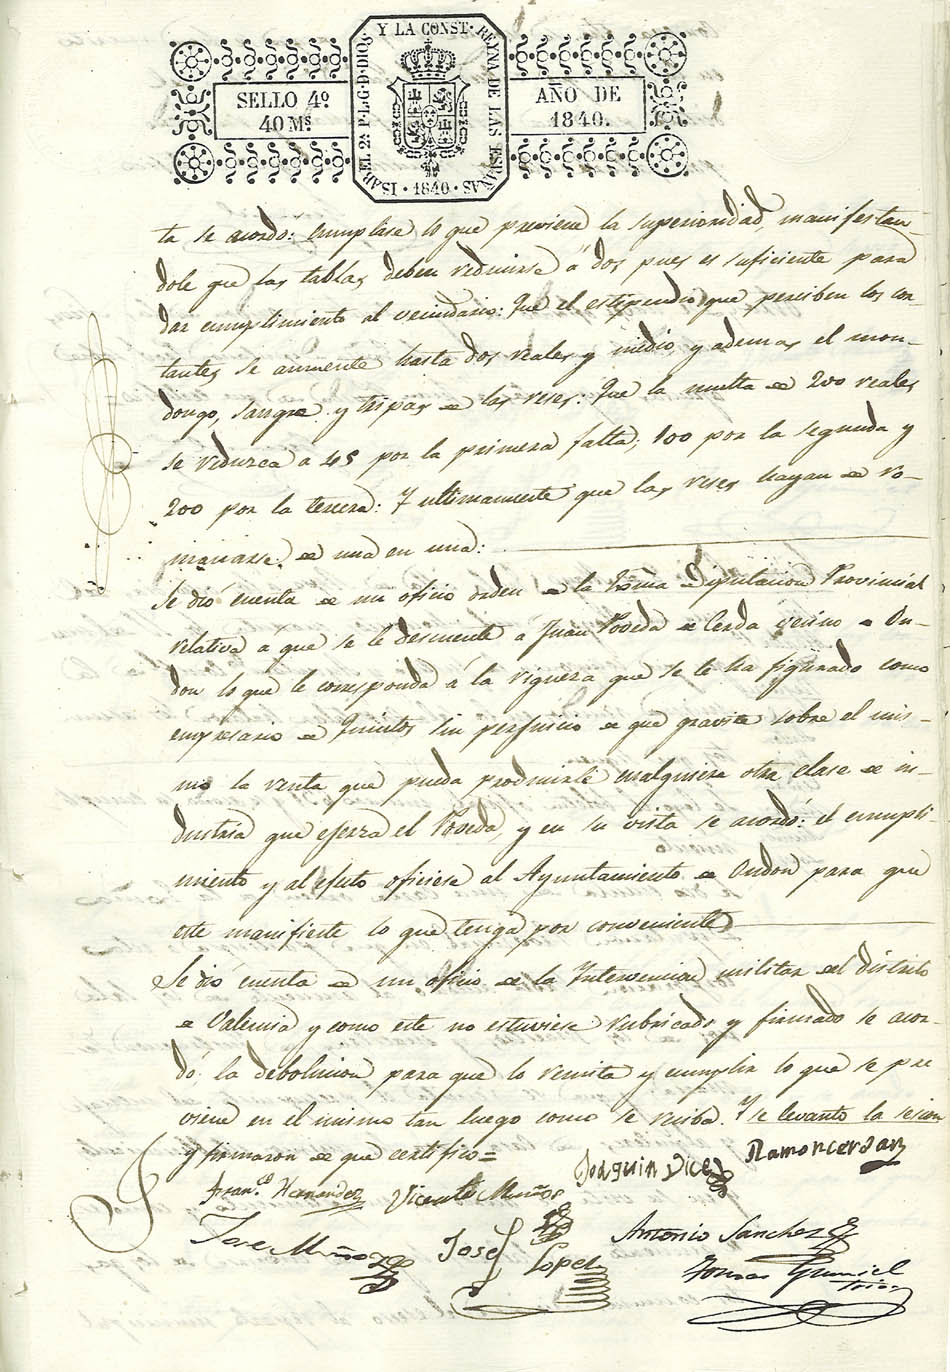 SELLO 4º
40 Mˢ
ISABEL 2ª P. L. G. D. DIOS. Y LA CONST. REYNA DE LAS ESPAÑAS
· 1840 ·
AÑO DE
1840.
ta se acordó: Cumplase lo que previene la superioridad, manifestan-
dole que las tablas deben reducirse á dos pues es suficiente para
dar cumplimiento al vecindario: Que el estipendio que perciben los cor-
tantes se aumente hasta dos reales y medio, y ademas el mon-
dongo, sangre y tripas de las reses: Que la multa de 200 reales
se reduzca a 45 por la primera falta, 100 por la segunda y
200 por la tercera: Y ultimamente que las reses hayan de ro-
manarse de una en una:
Se dió cuenta de un oficio orden de la Exma Diputacion Provincial
relativa á que se le descuente a Juan Poveda de Cerda vecino de On-
don lo que le corresponda á la riqueza que se le ha figurado como
empresario de Quintos sin perjuicio de que gravite sobre el mis-
mo la renta que pueda producirle cualquiera otra clase de in-
dustria que ejerza el Poveda, y en su vista se acordó: el cumpli
miento y al efecto oficiese al Ayuntamiento de Ondon para que
este manifieste lo que tenga por conveniente
Se dió cuenta de un oficio de la Intervencion militar del distrito
de Valencia y como este no estuviese rubricado y firmado se acor-
dó: la debolucion para que lo remita y cumplir lo que se pre
viene en el mismo tan luego como se reciba. Y se levanto la sesion
y firmaron de que certifico=
Joaquin Vicez
Ramon Cerdan
Franᶜᵒ Hernandez
Vicente Muños
Jose Muños
José
Lopez
Antonio Sanchez
Tomas